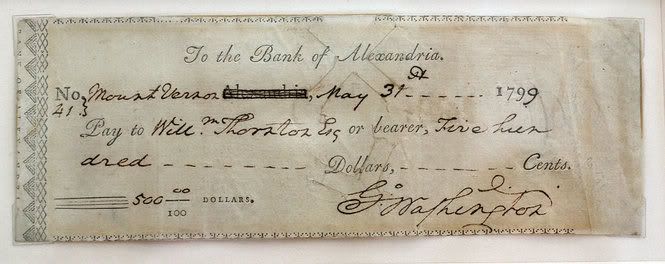 To the Bank of Alexandria.
No. Mount Vernon Alexandria, May 31st 1799
413
Pay to Willm. Thornton Esq or bearer, Five hun
dred Dollars, Cents.
500 00/100 DOLLARS. Go. Washington